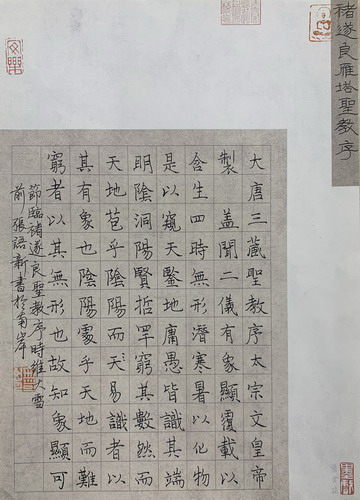 褚遂良雁塔聖教序
大唐三藏聖教序太宗文皇帝
製 蓋聞二儀有象顯覆載以
含生四時無形潛寒暑以化物
是以窺天鑒地庸愚皆識其端
明陰洞陽賢哲罕窮其數然而
天地苞乎陰陽而天易識者以
其有象也陰陽處乎天地而難
窮者以其無形也故知象顯可
節臨褚遂良聖教序時維大雪
前張語新書於南岸